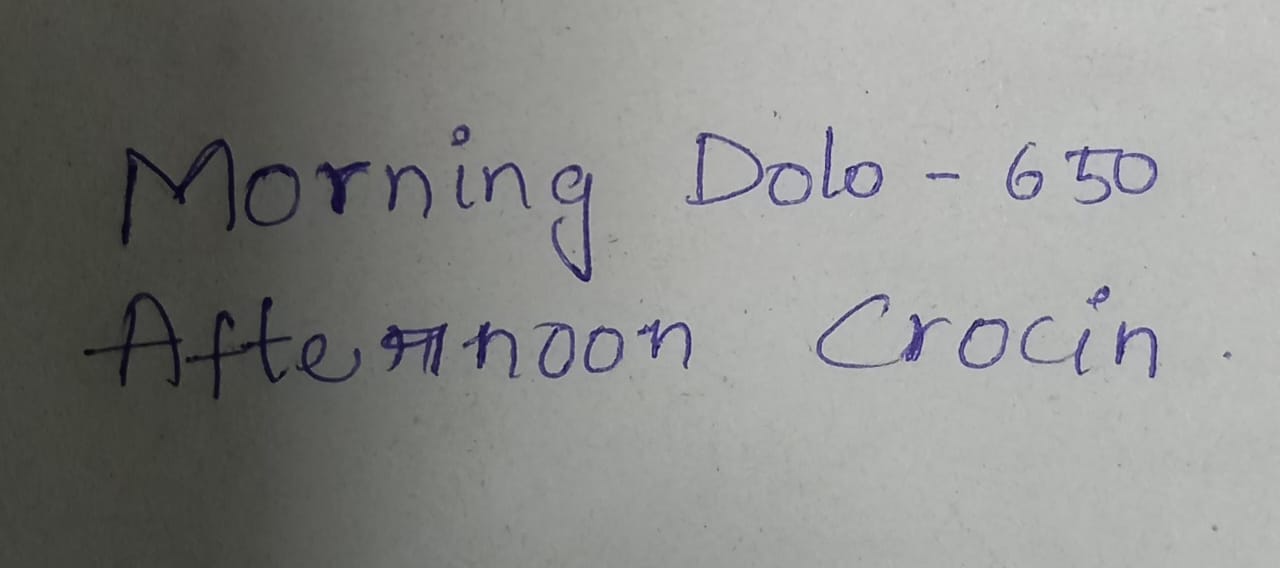 Morning Dolo - 650
Afternoon Crocin.